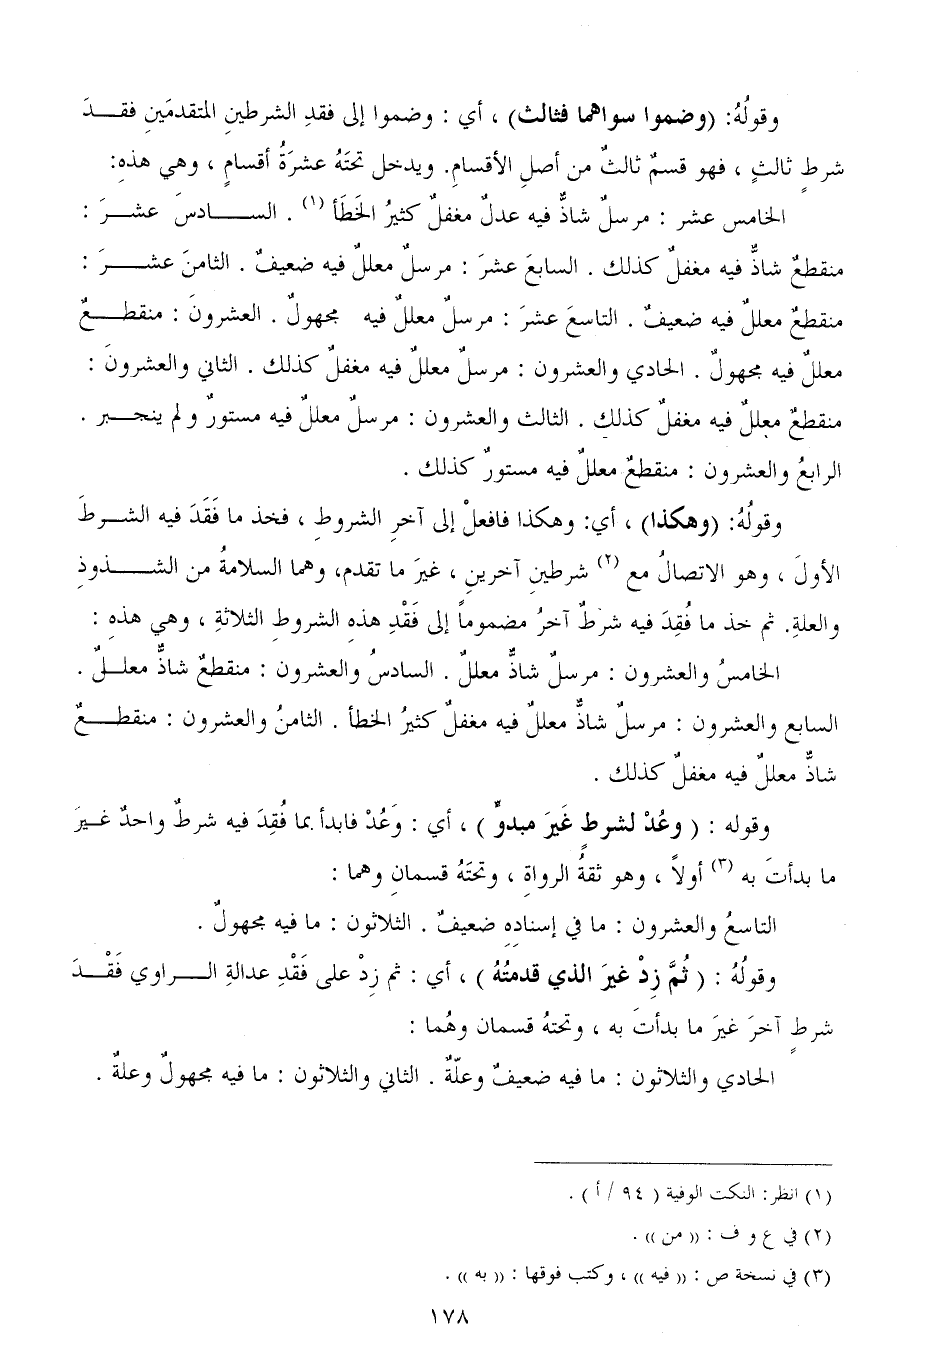 وقولُهُ: (وضموا سواهما فثالث) ، أي : وضموا إلى فقدِ الشرطينِ المتقدمَينِ فقـــدَ
شرطٍ ثالثٍ ، فهو قسمٌ ثالثٌ من أصلِ الأقسامِ. ويدخل تحتَهُ عشرَةُ أقسامٍ ، وهي هذه:
الخامس عشر : مرسلٌ شاذٌّ فيه عدلٌ مغفلٌ كثيرُ الخَطَأ (١) . الســـــادسَ عشــرَ :
منقطعٌ شاذٌّ فيه مغفلٌ كذلك . السابعَ عشرَ : مرسلٌ معللٌ فيه ضعيفٌ . الثامنَ عشــــرَ :
منقطعٌ معللٌ فيه ضعيفٌ . التاسعَ عشرَ : مرسلٌ معللٌ فيه مجهولٌ . العشرونَ : منقطــــعٌ
معللٌ فيه مجهولٌ . الحادي والعشرون : مرسلٌ معللٌ فيه مغفلٌ كذلك . الثاني والعشرونَ :
منقطعٌ معللٌ فيه مغفلٌ كذلك . الثالث والعشرون : مرسلٌ معللٌ فيه مستورٌ ولم ينجــبر .
الرابعُ والعشرون : منقطعٌ معللٌ فيه مستورٌ كذلك .
وقولُهُ: (وهكذا) ، أي: وهكذا فافعلْ إلى آخرِ الشروطِ ، فخذ ما فَقَدَ فيه الشــرطَ
الأولَ ، وهو الاتصالُ مع (٢) شرطينِ آخرينِ ، غيرَ ما تقدم، وهما السلامةُ من الشــــذوذِ
والعلةِ. ثم خذ ما فُقِدَ فيه شرطٌ آخرُ مضموماً إلى فَقْدِ هذهِ الشروطِ الثلاثةِ ، وهي هذه :
الخامسُ والعشرون : مرسلٌ شاذٌّ معللٌ . السادسُ والعشرون : منقطعٌ شاذٌّ معلــلٌ .
السابع والعشرون : مرسلٌ شاذٌّ معللٌ فيه مغفلٌ كثيرُ الخطأ . الثامنُ والعشرون : منقطــــعٌ
شاذٌّ معللٌ فيه مغفلٌ كذلك .
وقوله : ( وعُدْ لشرطٍ غَيرَ مبدوٍّ ) ، أي : وَعُدْ فابدأ بما فُقِدَ فيه شرطٌ واحدٌ غـيرَ
ما بدأتَ به (٣) أولاً ، وهو ثقةُ الرواةِ ، وتحتَهُ قسمانِ وهما :
التاسعُ والعشرون : ما في إسنادِهِ ضعيفٌ . الثلاثون : ما فيه مجهولٌ .
وقولُهُ : ( ثُمَّ زِدْ غيرَ الذي قدمتُهُ ) ، أي : ثم زِدْ على فَقْدِ عدالةِ الــــراوي فَقْــدَ
شرطٍ آخرَ غيرَ ما بدأتَ به ، وتحتهُ قسمان وهُما :
الحادي والثلاثون : ما فيه ضعيفٌ وعلّةٌ . الثاني والثلاثون : ما فيه مجهولٌ وعلةٌ .
(١) انظر: النكت الوفية ( ٩٤ / أ ) .
(٢) في ع و ف : (( من )) .
(٣) في نسخة ص : (( فيه )) ، وكتب فوقها : (( به )) .
١٧٨